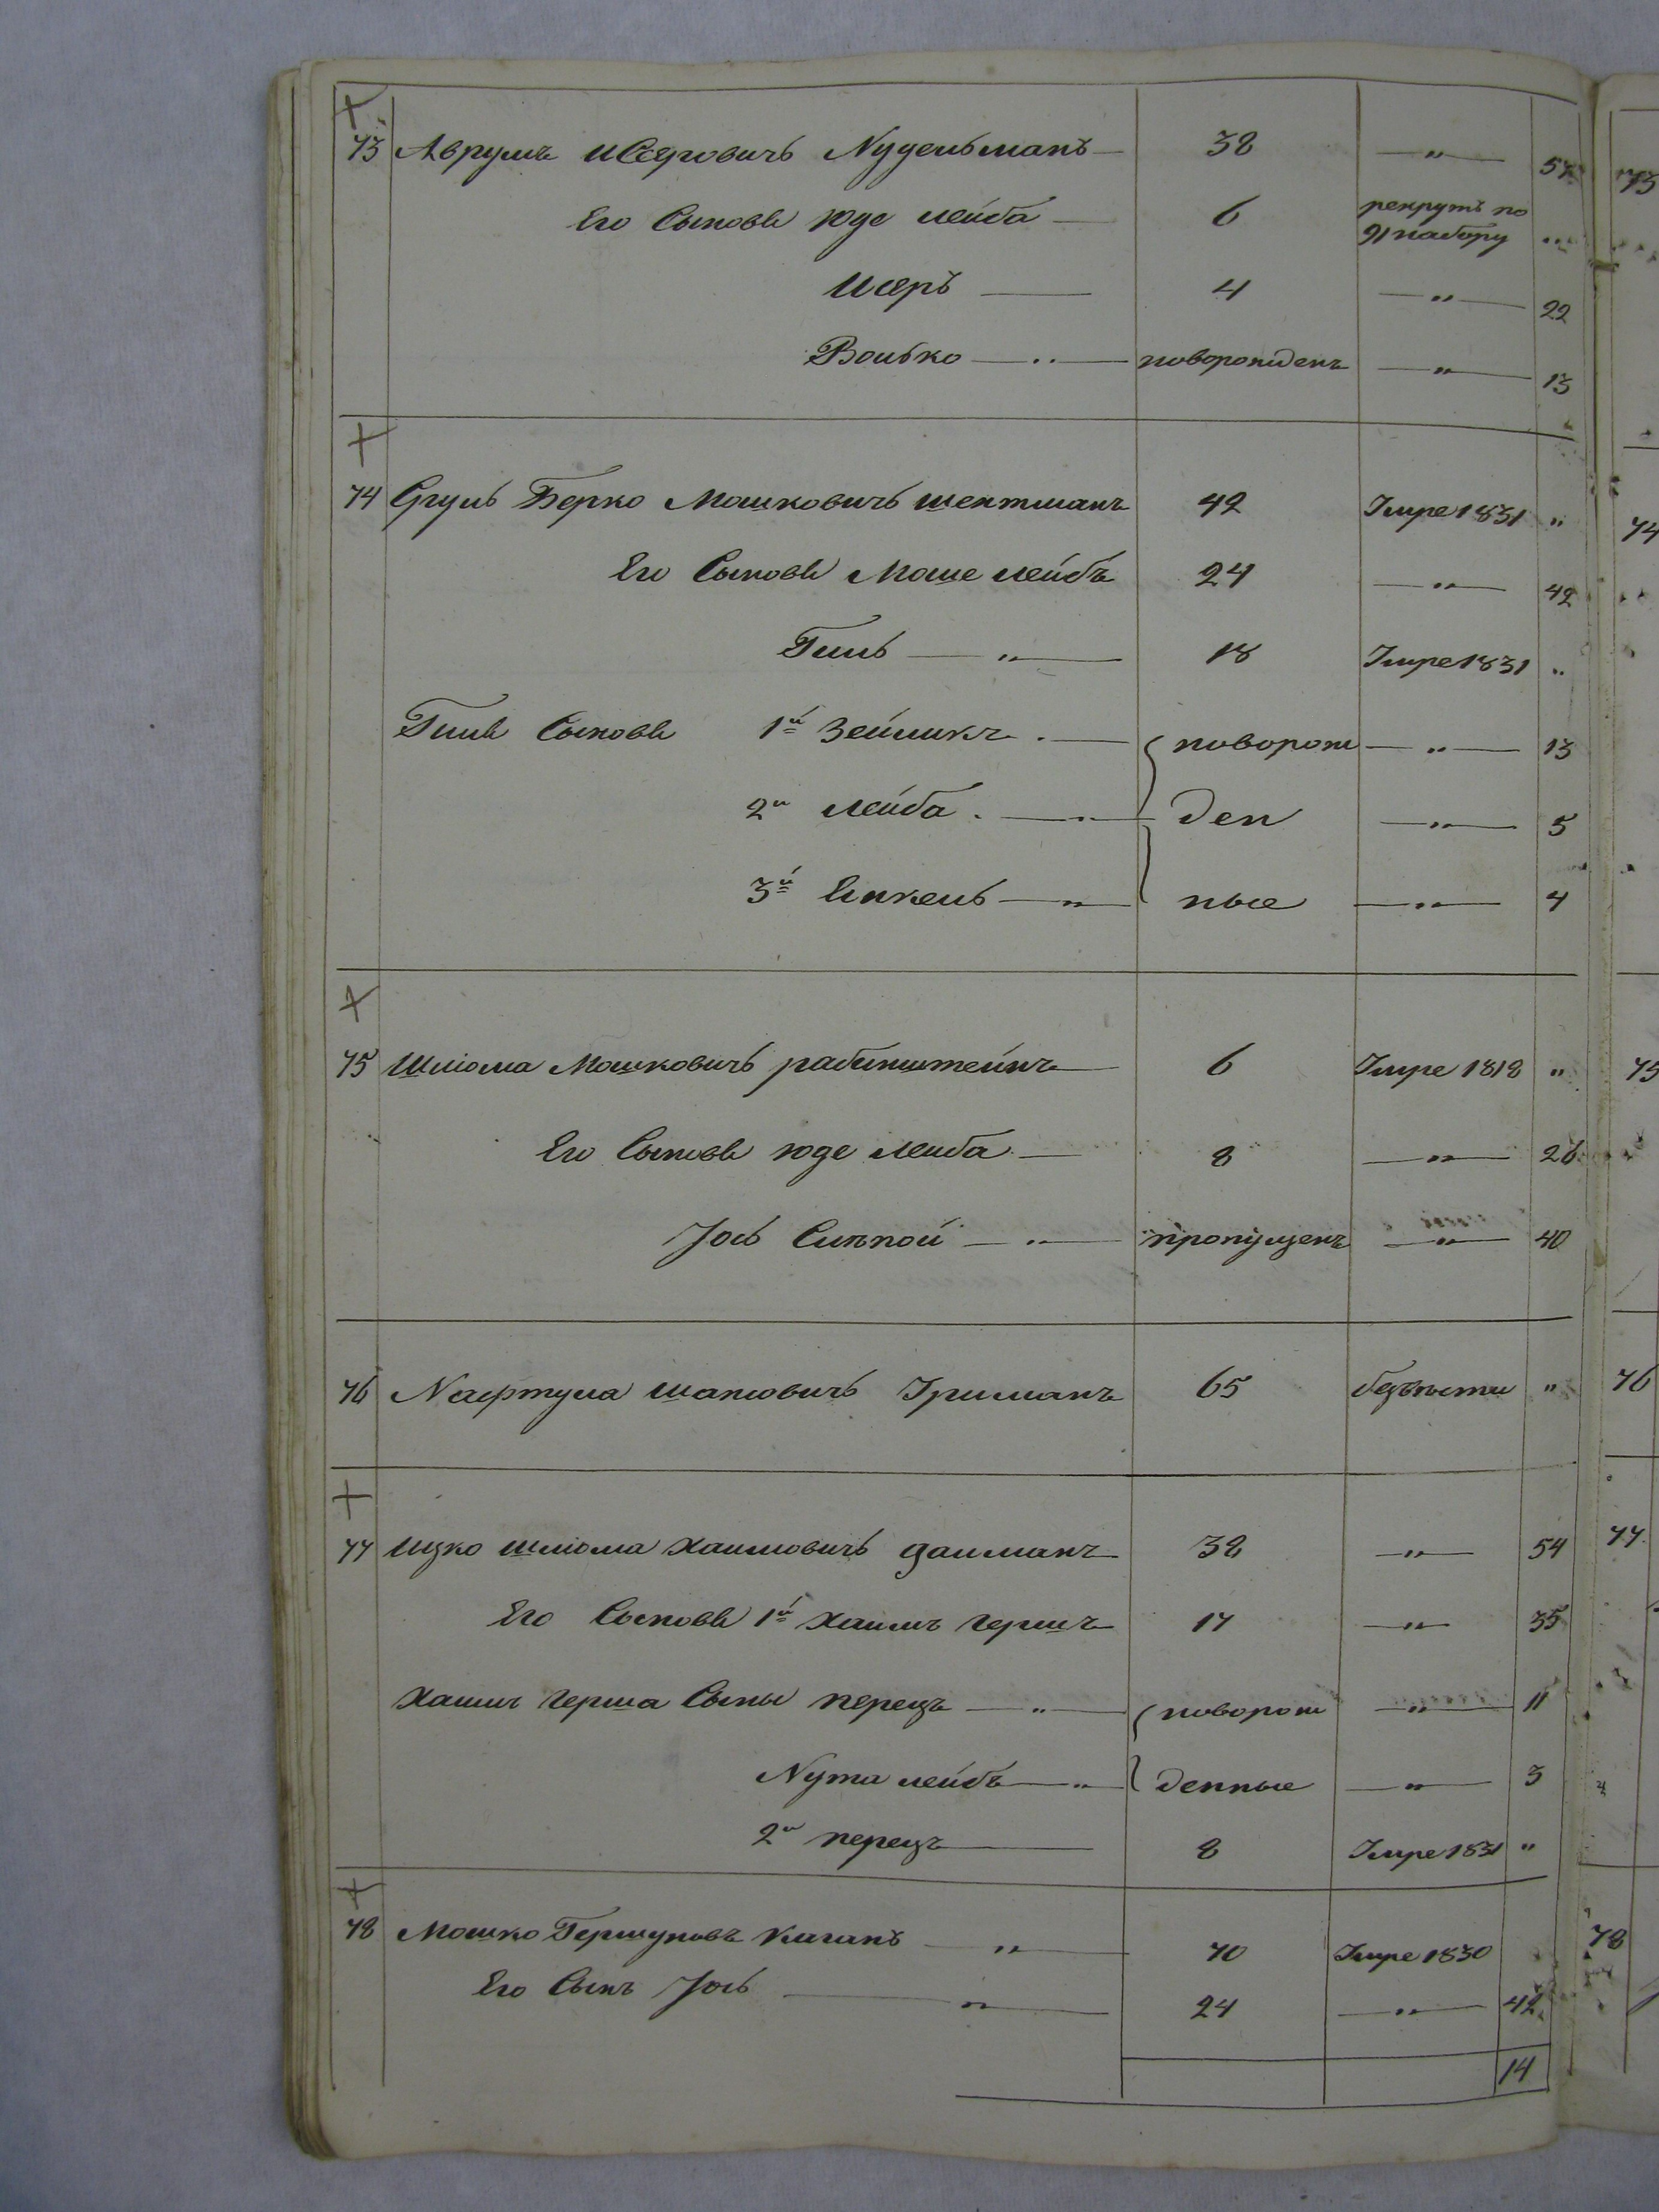 73 Аврумъ Исеровичъ Нудельманъ — 38 — „ — 57
Его Сыновья Юде Лейба — 6 рекрутъ по 91 набору „
Исеръ — 4 — „ — 22
Волько — „ — новорожденъ — „ — 13
74 Сруль Берко Мошковичъ Шехтманъ 42 Умре 1831 „
Его Сыновья Моше Лейбъ 24 — „ — 42
Гиль — „ — 18 Умре 1831 „
Гиля Сыновья 1й Зейликъ — новорож — „ — 13
2й Лейба — „ — ден — „ — 5
3й Янкель — „ — ные — „ — 4
75 Шлiома Мошковичъ рабинштейнъ — 6 Умре 1818 „
Его Сыновья Юде Лейба — 8 — „ — 26
Iось Слѣпой — „ — пропущенъ — „ — 40
76 Нафтула Шаповичъ Гриманъ 65 безвѣсти „
77 Ицко Шлiома Хаимовичъ Дайманъ — 38 — „ — 54
Его Сыновья 1й Хаимъ Гершъ — 17 — „ — 35
Хаимъ Герша Сыны Перецъ — „ — новорож — „ — 11
Нута Лейбъ — „ — денные — „ — 3
2й Перецъ — 8 Умре 1831 „
78 Мошко Гершуновъ Каганъ — „ — 70 Умре 1830
Его Сынъ Iось — „ — 24 — „ — 42
14
73
74
75
76
77
78